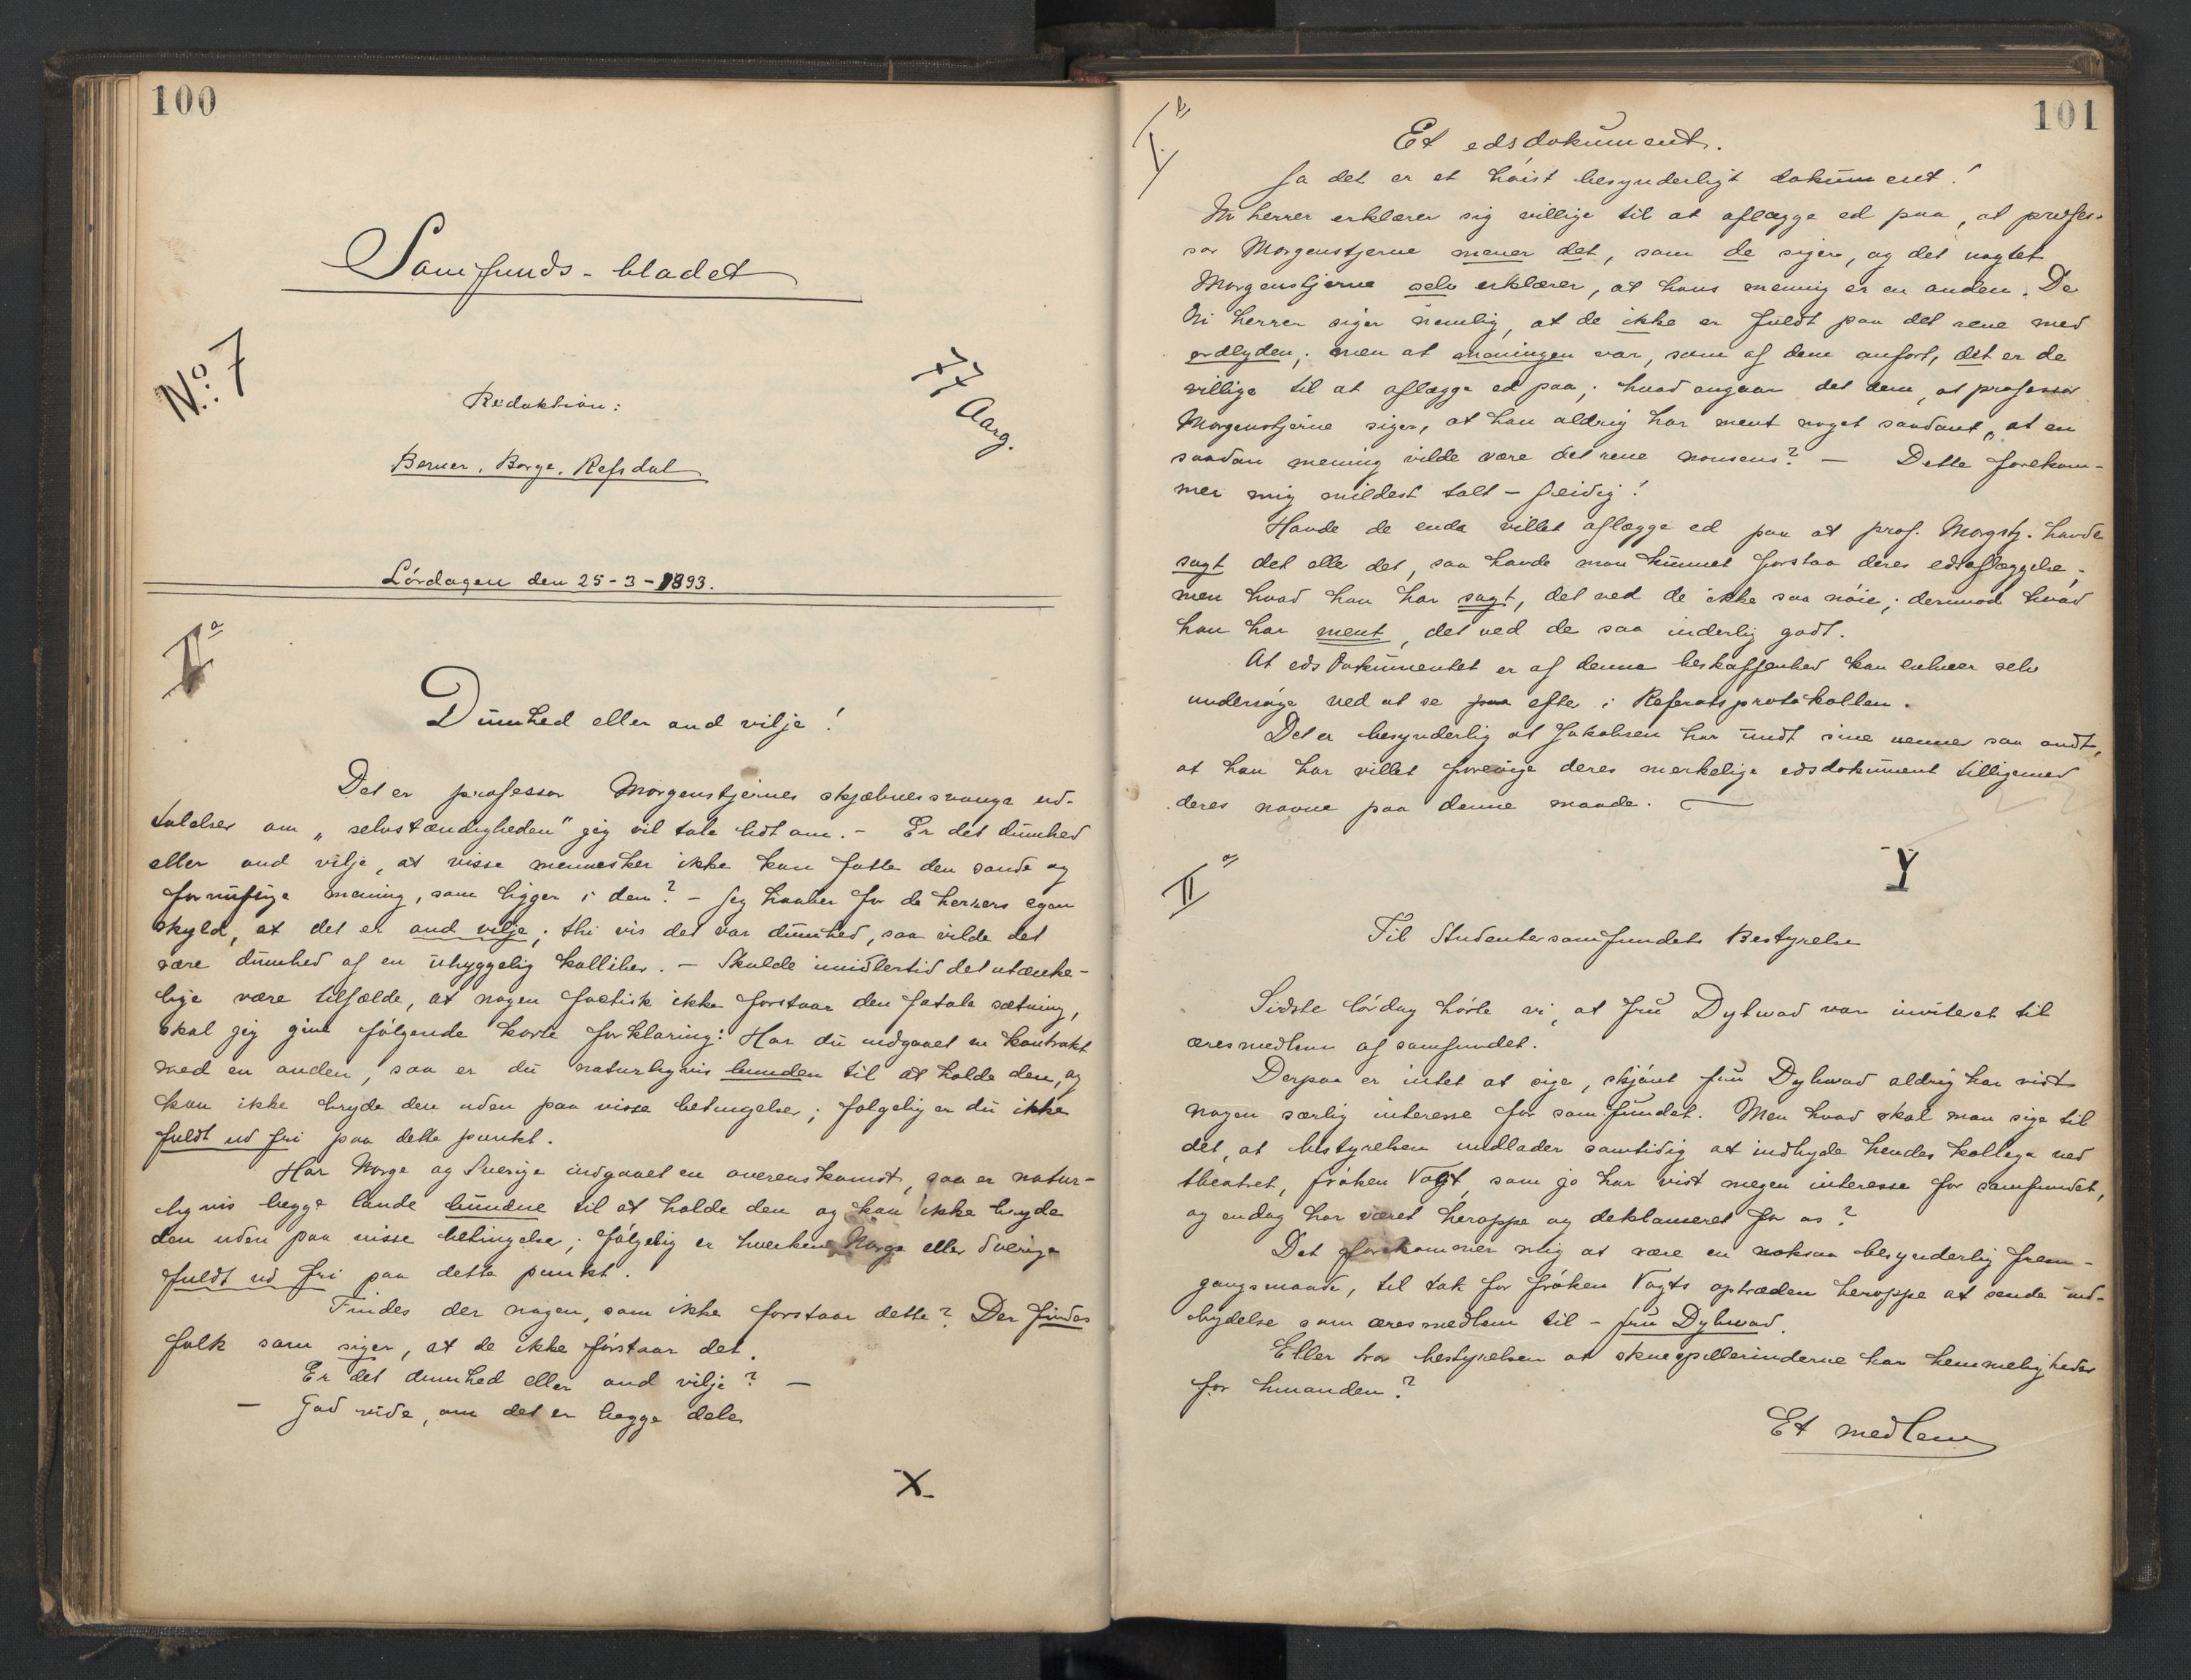 100
Samfunds-bladet
No: 7
77 Aarg.
Redaktion:
Berner, Borge, Refsdal
Lördagen den 25-3-1893.
I a
Dumhed eller ond vilje!
Det er professor Morgenstjernes skjæbnesvange ud-
talelser om „selvstændigheden" jeg vil tale lidt om. – Er det dumhed
eller ond vilje, at visse mennesker ikke kan fatte den sande og
fornuftige mening, som ligger i den? – Jeg haaber for de herrers egen
skyld, at det er ond vilje; thi vis det var dumhed, saa vilde det
være dumhed af en uhyggelig kalliber. – Skulde imidlertid det utænke-
lige være tilfælde, at nogen factisk ikke forstaar den fatale sætning,
skal jeg give følgende korte forklaring: Har du indgaaet en kontrakt
med en anden, saa er du naturligvis bunden til at holde den, og
kan ikke bryde den uden paa visse betingelser; følgelig er du ikke
fuldt ud fri paa dette punkt.
Har Norge og Sverige indgaaet en overenskomst, saa er natur-
ligvis begge lande bundne til at holde den og kan ikke bryde
den uden paa visse betingelser; følgelig er hverken Norge eller Sverige
fuldt ud fri paa dette punkt.
Findes der nogen, som ikke forstaar dette? Der findes
folk som siger, at de ikke forstaar det.
Er det dumhed eller ond vilje? –
– Gad vide, om det er begge dele
X
101
I b
Et edsdokument.
Ja det er et höist besynderligt dokument!
Ni herrer erklærer sig villige til at aflægge ed paa, at profes-
sor Morgenstjerne mener det, som de siger, og det uagtet
Morgenstjerne selv erklærer, at hans mening er en anden. De
ni herrer siger nemlig, at de ikke er fuldt paa det rene med
ordlyden; men at meningen var, som af dem anfört, det er de
villige til at aflægge ed paa; hvad angaar det dem, at professor
Morgenstjerne siger, at han aldrig har ment noget saadant, at en
saadan mening vilde være det rene nonsens? – Dette forekom-
mer mig mildest talt – freidig!
Havde de enda villet aflægge ed paa at prof. Morgstj. havde
sagt det elle det, saa havde man kunnet forstaa deres edsaflæggelse;
men hvad han har sagt, det ved de ikke saa nöie; derimod hvad
han har ment, det ved de saa inderlig godt.
At edsdokumentet er af denne beskaffenhed kan enhver selv
undersöge ved at se paa efter i Referatsprotokollen.
Det er besynderlig at Jakobsen har undt sine venner saa ondt,
at han har villet forevige deres merkelige edsdokument tilligemed
deres navne paa denne maade. –
Y
II a
Til Studentersamfundets Bestyrelse
Sidste lördag hörte vi, at fru Dybwad var inviteret til
æresmedlem af samfundet.
Derpaa er intet at sige, skjönt fru Dybwad aldrig har vist
nogen særlig interesse for samfundet. Men hvad skal man sige til
det, at bestyrelsen undlader samtidig at indbyde hendes kollega ved
theatret, fröken Vogt, som jo har vist megen interesse for samfundet,
og endog har været heroppe og deklameret for os?
Det forekommer mig at være en noksaa besynderlig frem-
gangsmaade, til tak for fröken Vogts optræden heroppe at sende ind-
bydelse som æresmedlem til – fru Dybwad.
Eller tror bestyrelsen at skuespillerinderne har hemmeligheder
for hinanden?
Et medlem